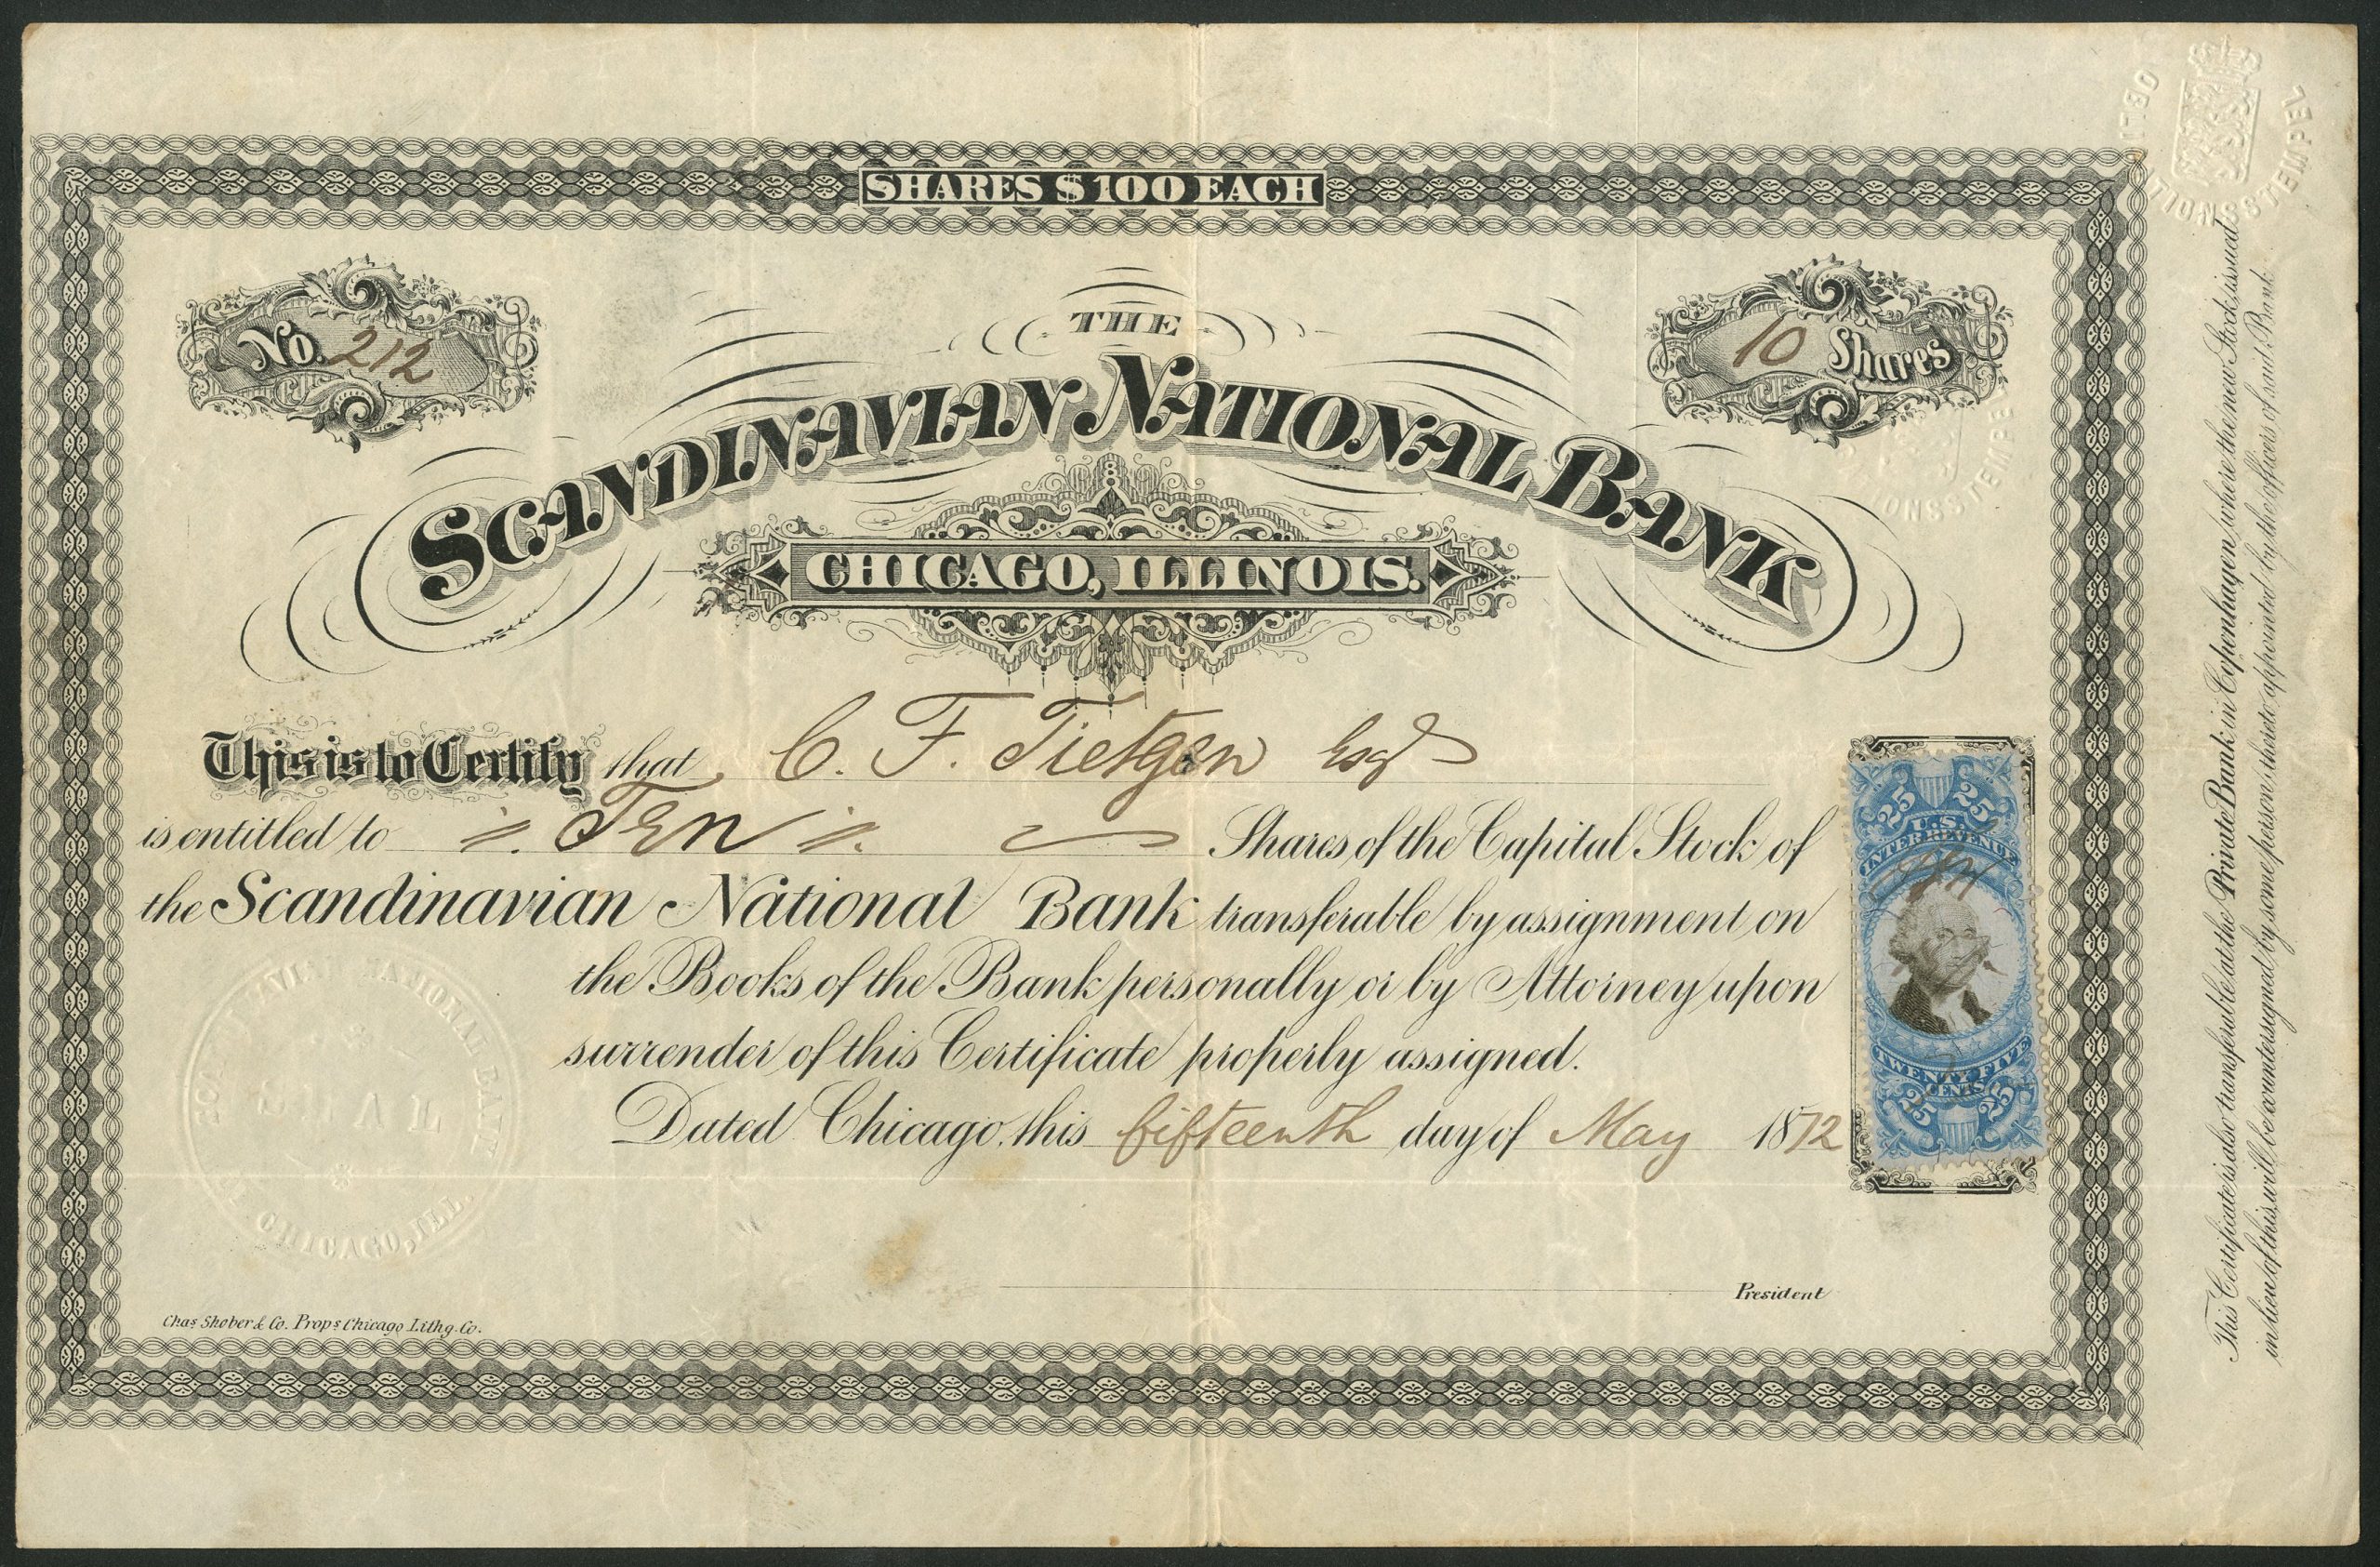 SHARES $100 EACH
No. 212
10 Shares
THE
SCANDINAVIAN NATIONAL BANK
CHICAGO, ILLINOIS.
This is to Certify that C. F. Tietgen Esqr
is entitled to Ten Shares of the Capital Stock of
the Scandinavian National Bank transferable by assignment on
the Books of the Bank personally or by Attorney upon
surrender of this Certificate properly assigned.
Dated Chicago, this fifteenth day of May 1872
President
Chas Shober & Co. Props Chicago Lithg. Co.
25 25
U.S.
INTER. REVENUE
TWENTY FIVE
CENTS
25 25
NATIONAL BANK
SEAL
CHICAGO, ILL.
OBLIGATIONSSTEMPEL
ONSSTEMPE
This Certificate is also transferable at the Private Bank in Copenhagen, where the new Stock issued
in lieu of this, will be countersigned by some person thereto appointed by the officers of said Bank